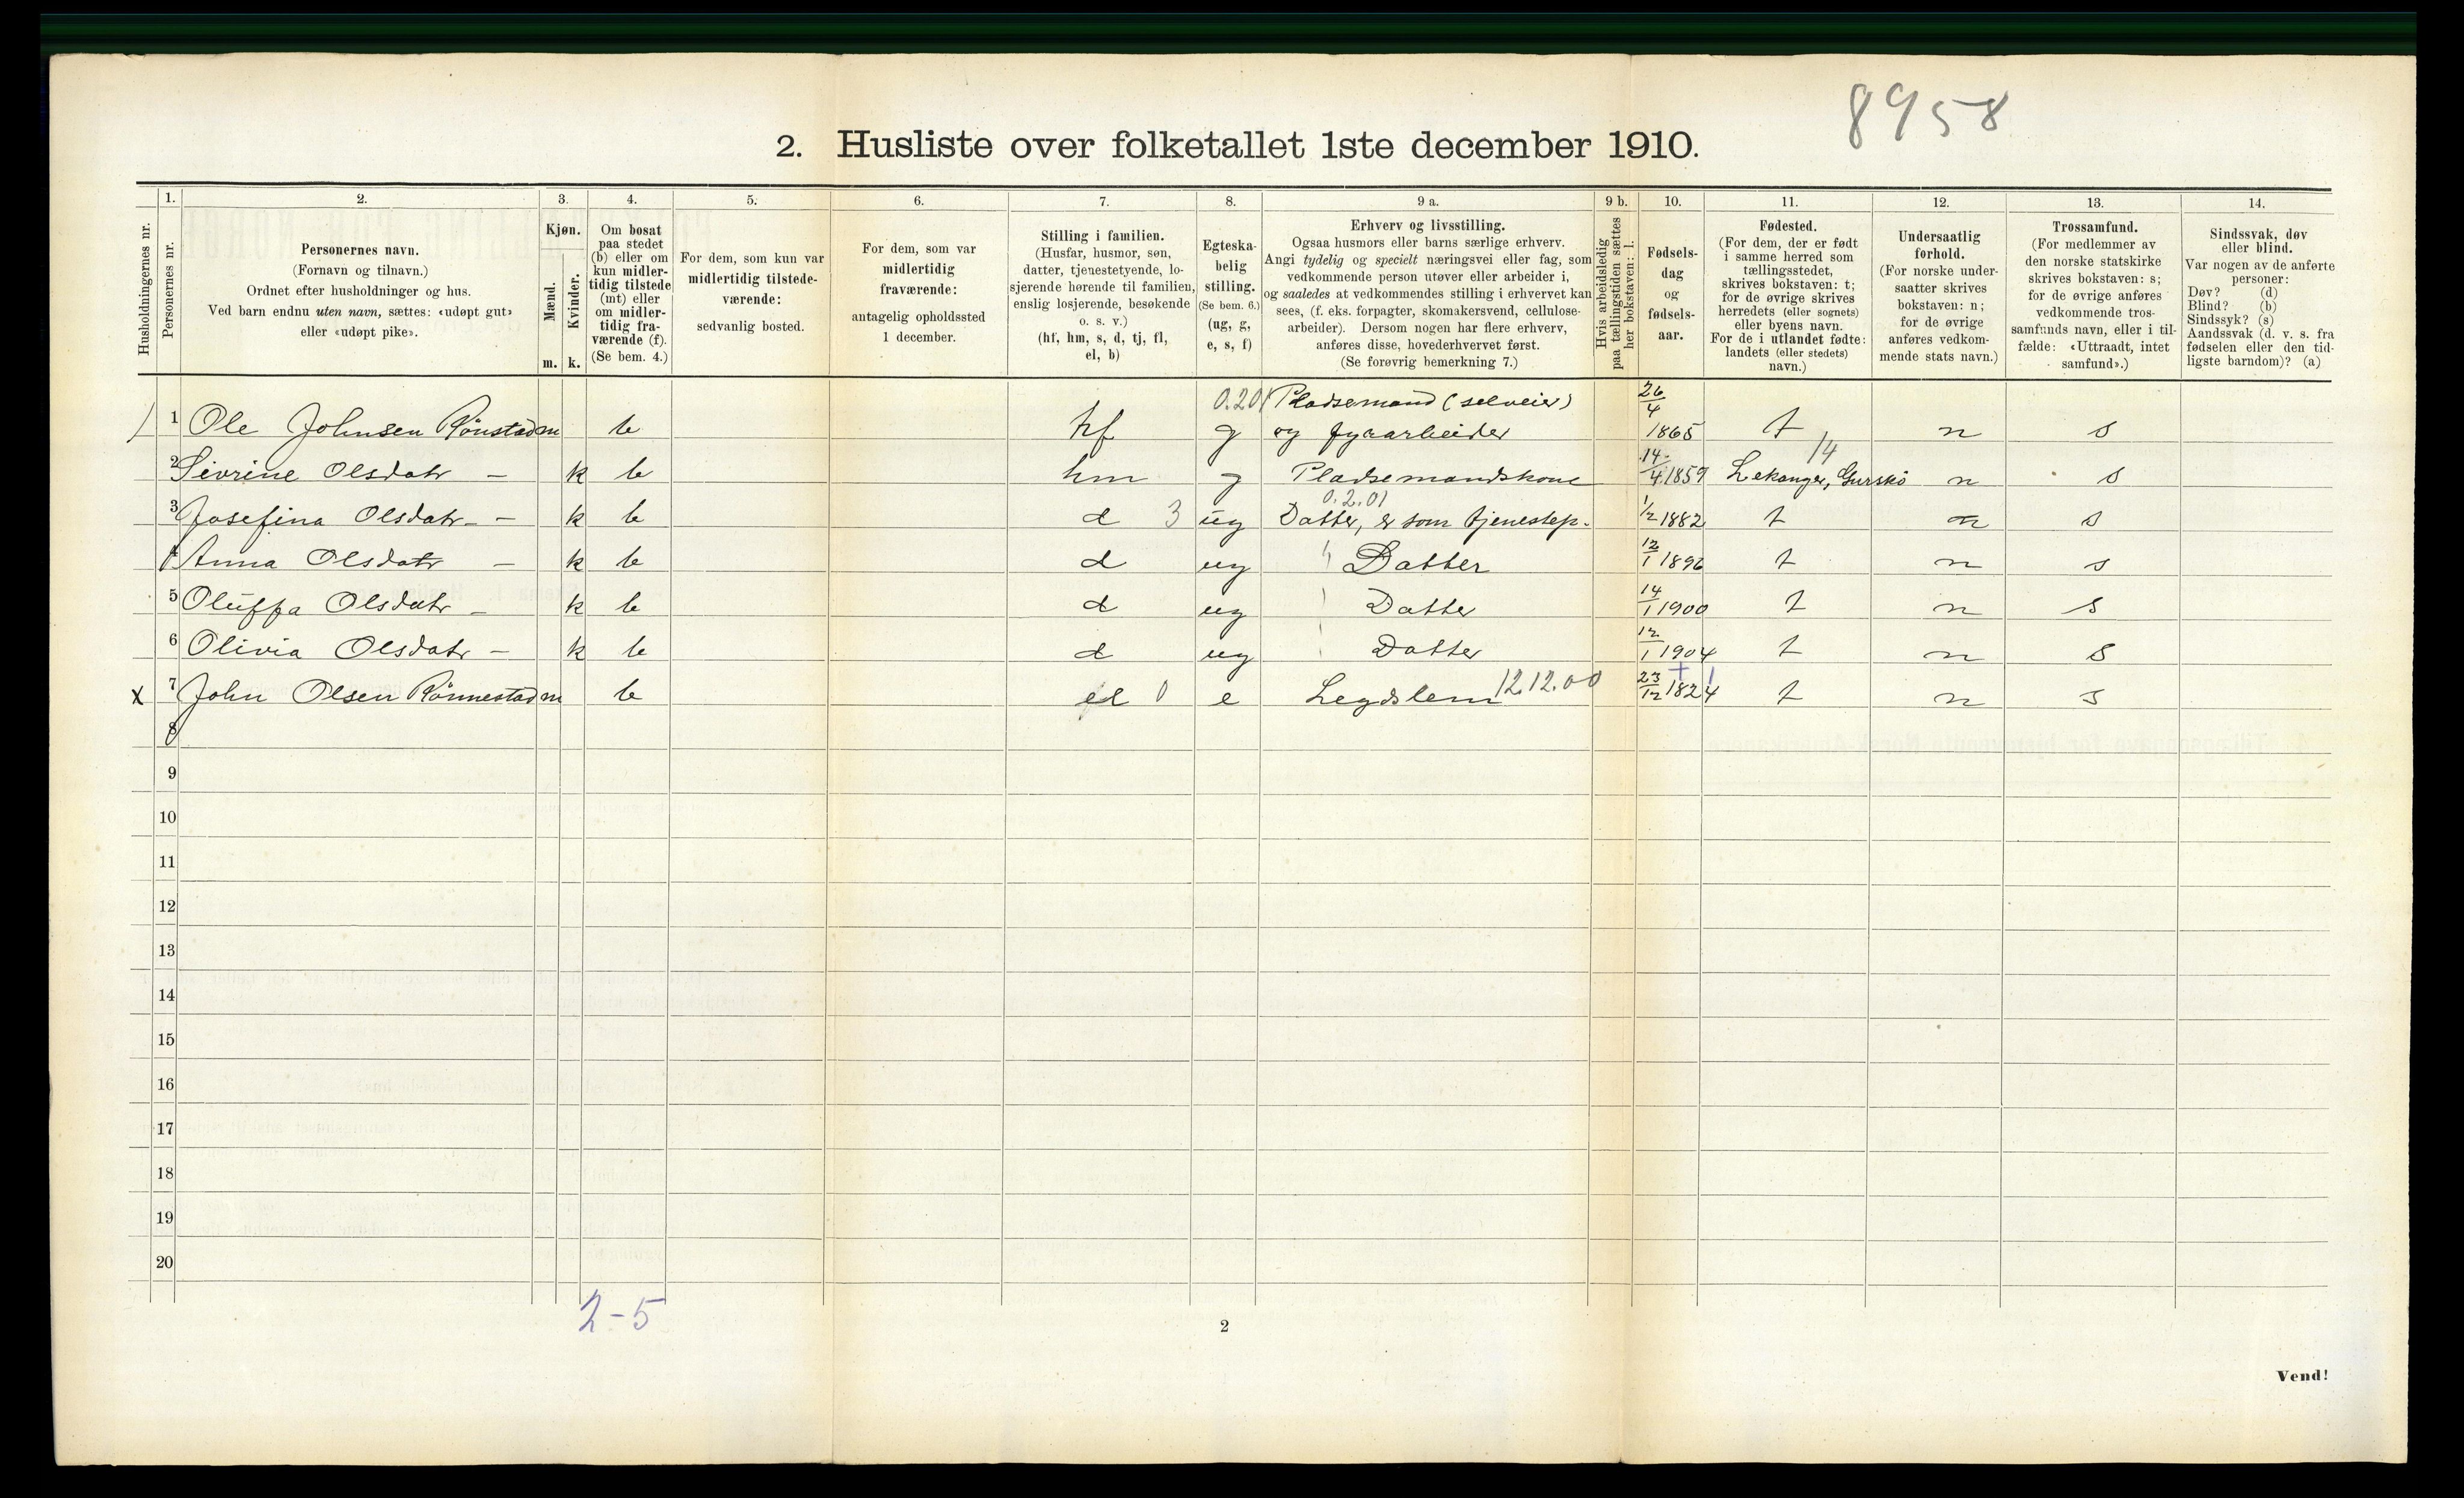 8958
2. Husliste over folketallet 1ste december 1910.
1. 2. 3. 4. 5. 6. 7. 8. 9 a. 9 b. 10. 11. 12. 13. 14.
Husholdningernes nr.
Personernes nr.
Personernes navn.
(Fornavn og tilnavn.)
Ordnet efter husholdninger og hus.
Ved barn endnu uten navn, sættes: «udøpt gut»
eller «udøpt pike».
Kjøn.
Mænd.
Kvinder.
m. k.
Om bosat
paa stedet
(b) eller om
kun midler-
tidig tilstede
(mt) eller
om midler-
tidig fra-
værende (f).
(Se bem. 4.)
For dem, som kun var
midlertidig tilstede-
værende:
sedvanlig bosted.
For dem, som var
midlertidig
fraværende:
antagelig opholdssted
1 december.
Stilling i familien.
(Husfar, husmor, søn,
datter, tjenestetyende, lo-
sjerende hørende til familien,
enslig losjerende, besøkende
o. s. v.)
(hf, hm, s, d, tj, fl,
el, b)
Egteska-
belig
stilling.
(Se bem. 6.)
(ug, g,
e, s, f)
Erhverv og livsstilling.
Ogsaa husmors eller barns særlige erhverv.
Angi tydelig og specielt næringsvei eller fag, som
vedkommende person utøver eller arbeider i,
og saaledes at vedkommendes stilling i erhvervet kan
sees, (f. eks. forpagter, skomakersvend, cellulose-
arbeider). Dersom nogen har flere erhverv,
anføres disse, hovederhvervet først.
(Se forøvrig bemerkning 7.)
Hvis arbeidsledig
paa tællingstiden sættes
her bokstaven: l.
Fødsels-
dag
og
fødsels-
aar.
Fødested.
(For dem, der er født
i samme herred som
tællingsstedet,
skrives bokstaven: t;
for de øvrige skrives
herredets (eller sognets)
eller byens navn.
For de i utlandet fødte:
landets (eller stedets)
navn.)
Undersaatlig
forhold.
(For norske under-
saatter skrives
bokstaven: n;
for de øvrige
anføres vedkom-
mende stats navn.)
Trossamfund.
(For medlemmer av
den norske statskirke
skrives bokstaven: s;
for de øvrige anføres
vedkommende tros-
samfunds navn, eller i til-
fælde: «Uttraadt, intet
samfund».)
Sindssvak, døv
eller blind.
Var nogen av de anførte
personer:
Døv? (d)
Blind? (b)
Sindssyk? (s)
Aandssvak (d. v. s. fra
fødselen eller den tid-
ligste barndom)? (a)
0.201 Pladsemand (selveier) 26/4
1 Ole Johnsen Rönstad m b hf g og fyrarbeider 1865 t n s
14
2 Sivrine Olsdatr – k b hm g Pladsemandskone 14/4 1859 Lekanger, Gurskö n s
0.2.01
3 Josefina Olsdatr – k b d 3 ug Datter, er som tjenestep. 1/2 1882 t n s
4 Anna Olsdatr – k b d ug Datter 12/1 1896 t n s
5 Oluffa Olsdatr – k b d ug Datter 14/1 1900 t n s
6 Olivia Olsdatr – k b d ug Datter 12/1 1904 t n s
x 7 John Olsen Rönnestad m b el 0 e Legdslem 12.12.00 23/12 1824 t n s
8
9
10
11
12
13
14
15
16
17
18
19
20
2-5
2
Vend!